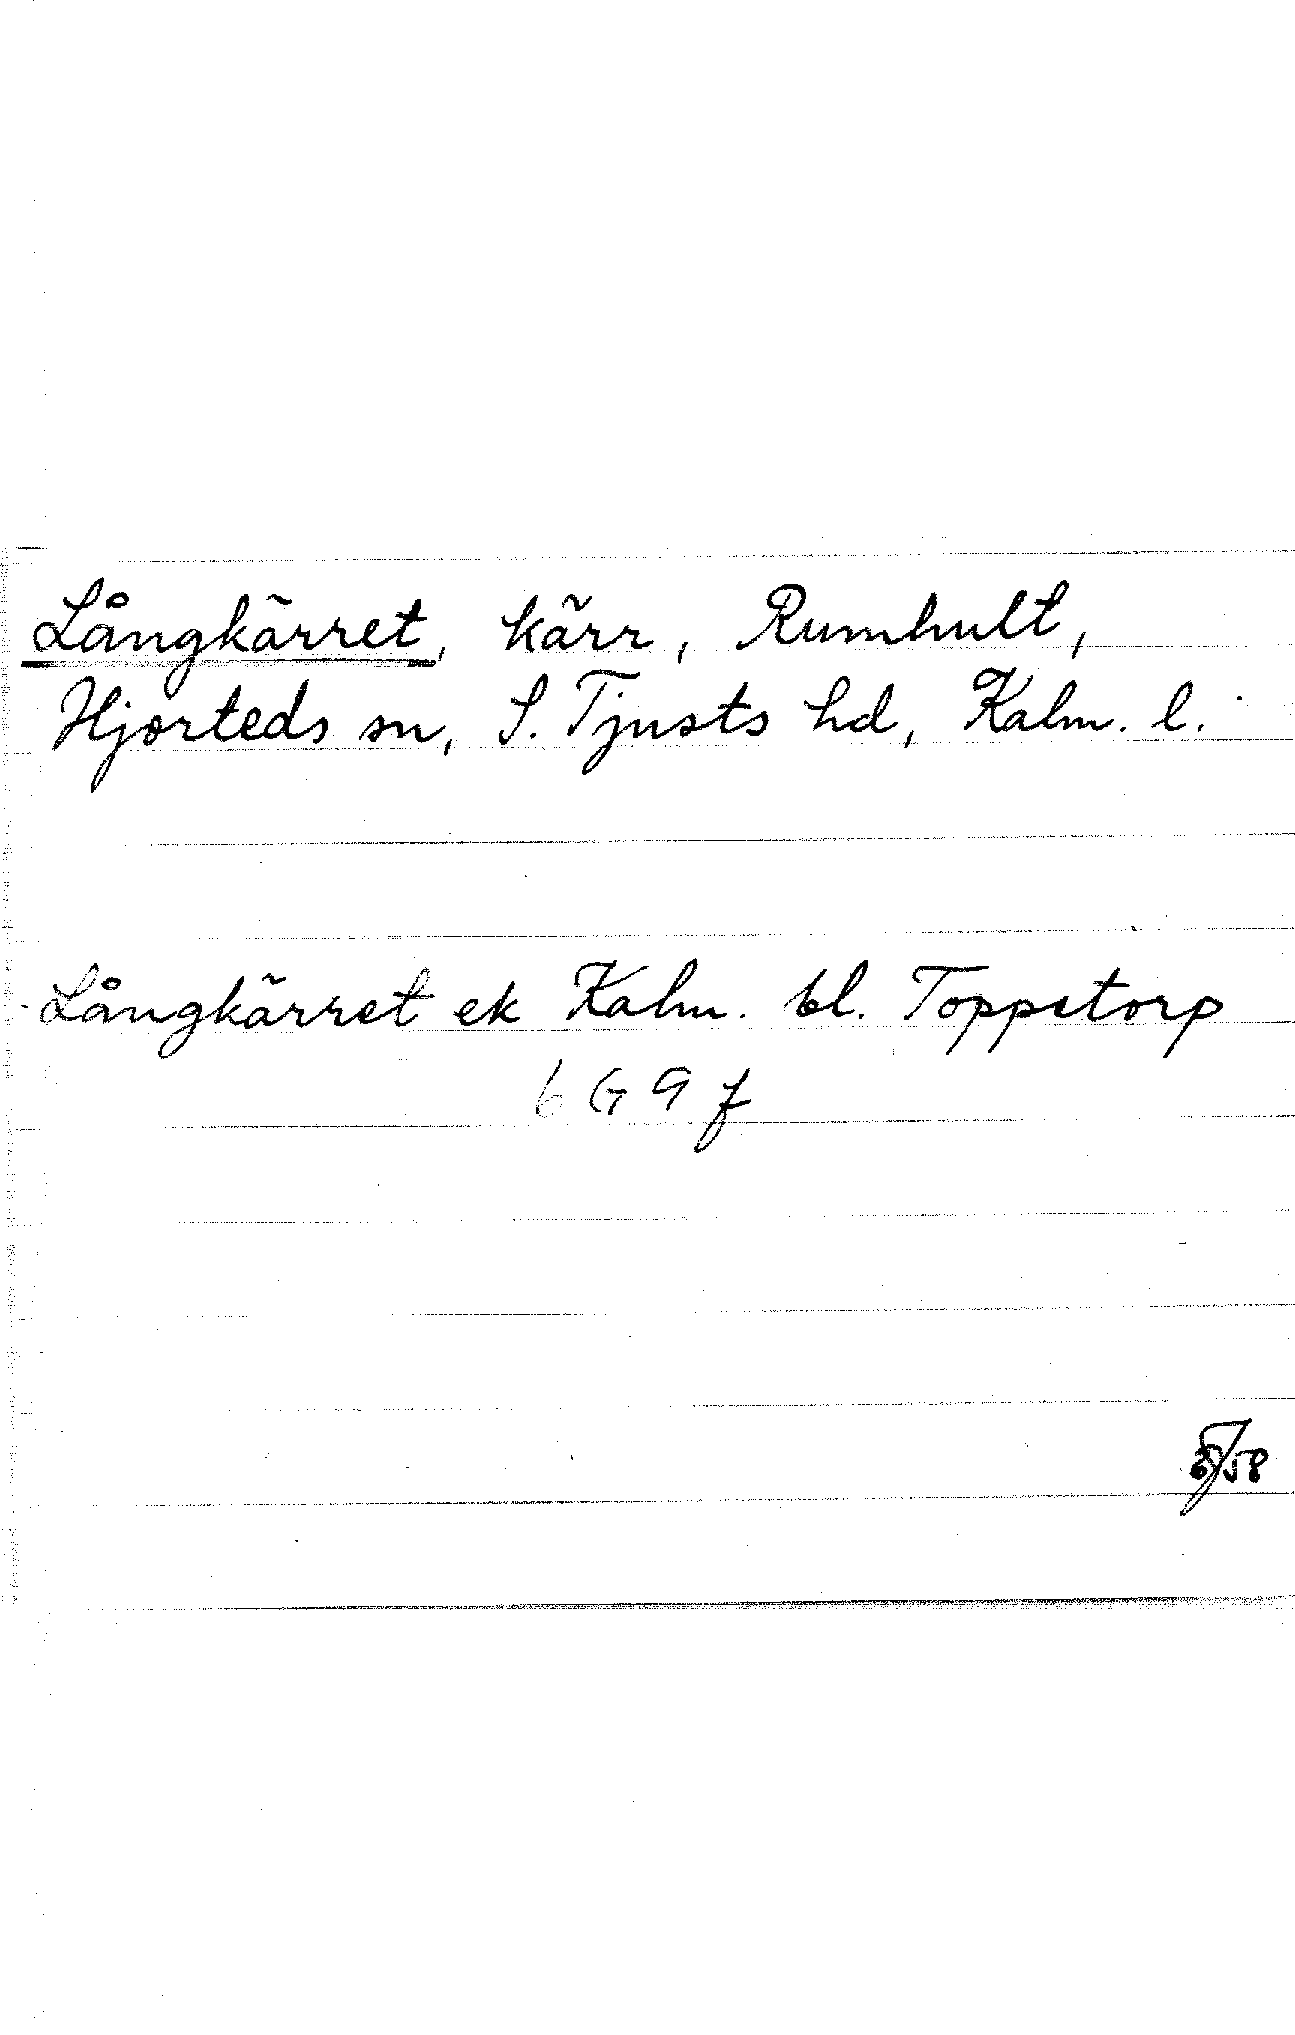 Långkärret, kärr, Rumhult,
Hjorteds sn, S. Tjusts hd, Kalm. l.
Långkärret ek Kalm. bl. Toppstorp
6 G 9 f